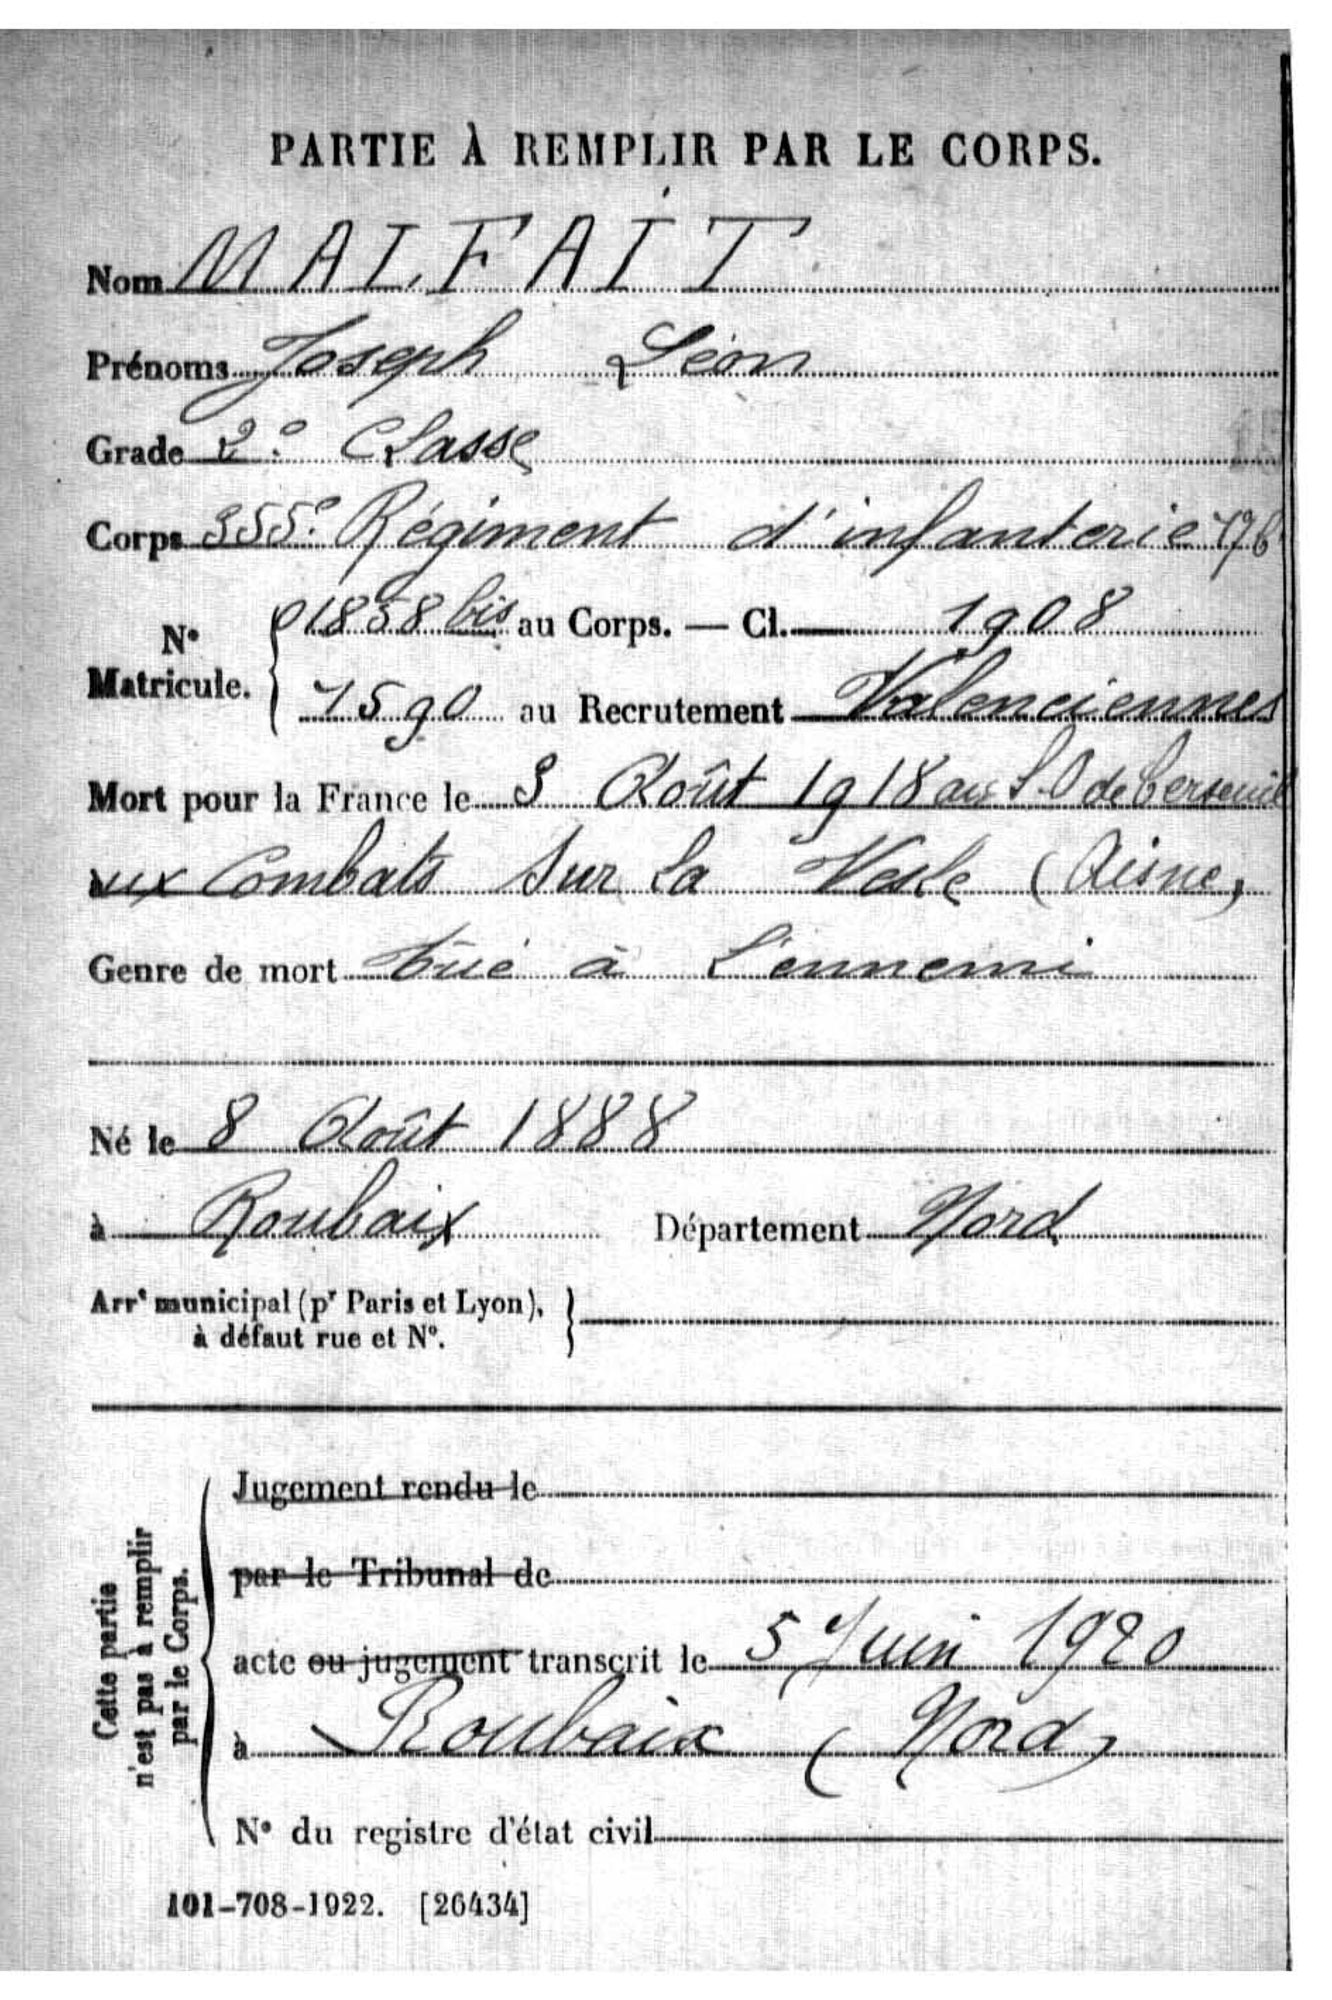 PARTIE À REMPLIR PAR LE CORPS.
Nom MALFAIT
Prénoms Joseph Léon
Grade 2e Classe
Corps 355e Régiment d'infanterie
N° Matricule. 01858 bis au Corps. — Cl. 1908
1590 au Recrutement Valenciennes
Mort pour la France le 3 Août 1918 au S.O de Cerseuil
aux Combats sur la Vesle (Aisne)
Genre de mort tué à l'ennemi
Né le 8 Août 1888
à Roubaix Département Nord
Arrt municipal (pr Paris et Lyon),
à défaut rue et N°.
Cette partie
n'est pas à remplir
par le Corps.
Jugement rendu le
par le Tribunal de
acte ou jugement transcrit le 5 Juin 1920
à Roubaix (Nord)
N° du registre d'état civil
101-708-1922. [26434]